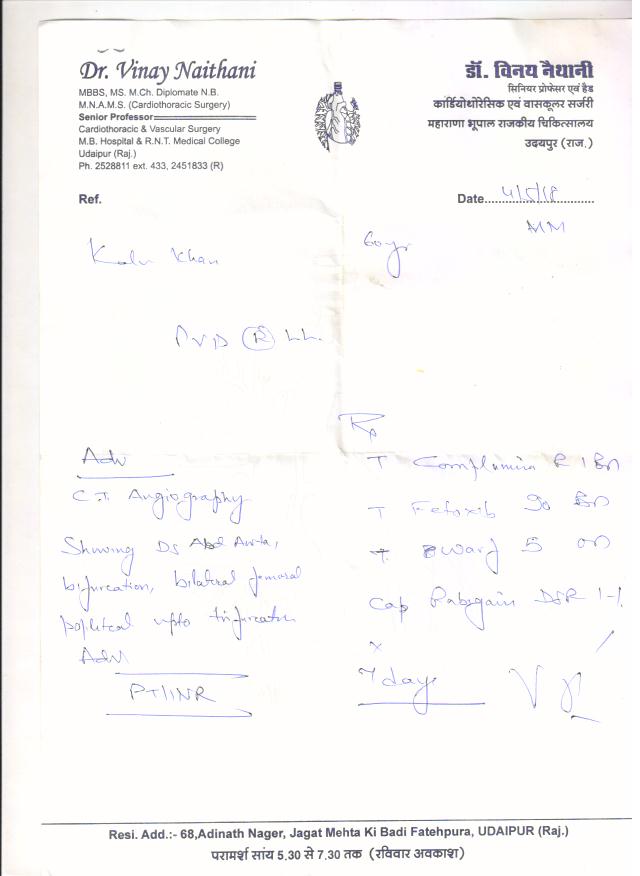 Dr. Vinay Naithani
MBBS, MS. M.Ch. Diplomate N.B.
M.N.A.M.S. (Cardiothoracic Surgery)
Senior Professor
Cardiothoracic & Vascular Surgery
M.B. Hospital & R.N.T. Medical College
Udaipur (Raj.)
Ph. 2528811 ext. 433, 2451833 (R)
डॉ. विनय नैथानी
सिनियर प्रोफेसर एवं हैड
कार्डियोथोरेसिक एवं वासकूलर सर्जरी
महाराणा भूपाल राजकीय चिकित्सालय
उदयपुर (राज.)
Ref.
Date 4/5/18
MM
Kalu Khan
60yr
PVD (R) LL.
Adv
C.T. Angiography
Showing Ds Abd Aorta,
bifurcation, bilateral femoral
popliteal upto trifurcation
Adv
PT/INR
Rx
T Complamina R 1 BD
T 90 BD
T. Warf 5 OD
Cap Rabegain DSR 1-1
x
7 days
Resi. Add.:- 68,Adinath Nager, Jagat Mehta Ki Badi Fatehpura, UDAIPUR (Raj.)
परामर्श सांय 5.30 से 7.30 तक (रविवार अवकाश)